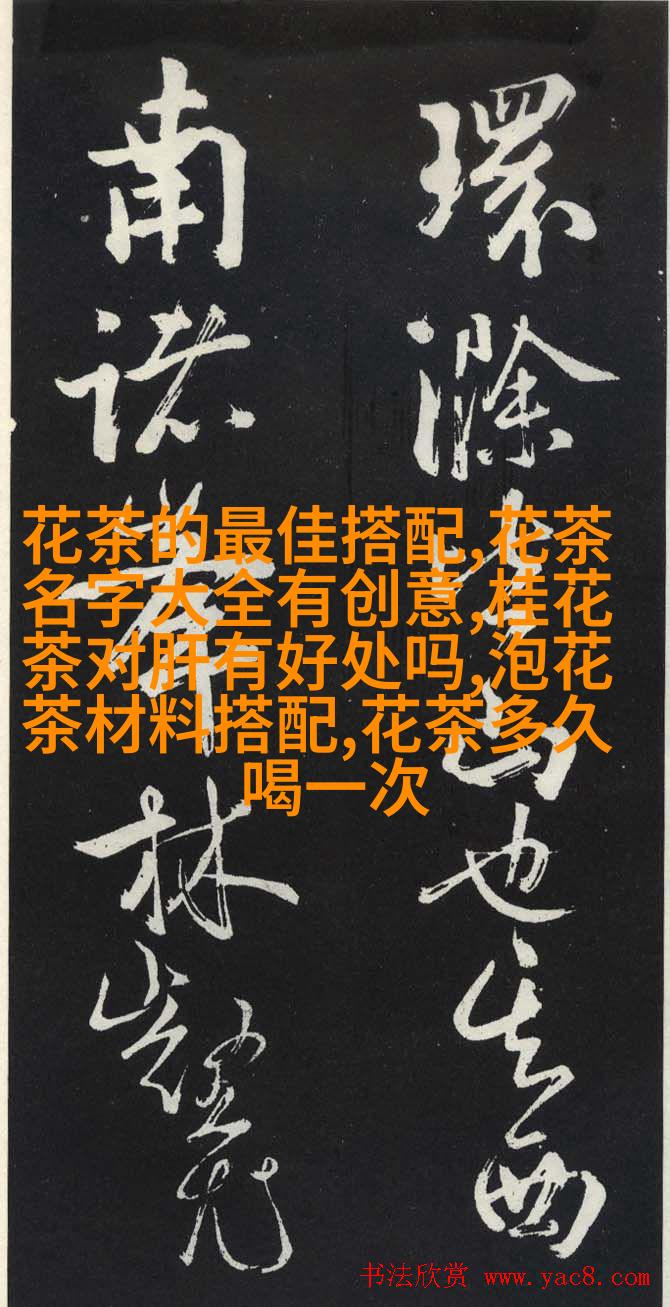 環滁皆山也其西
南諸峯林壑尤
花茶的最佳搭配,花茶
名字大全有创意,桂花
茶对肝有好处吗,泡花
茶材料搭配,花茶多久
喝一次
书法欣赏 www.yac8.com